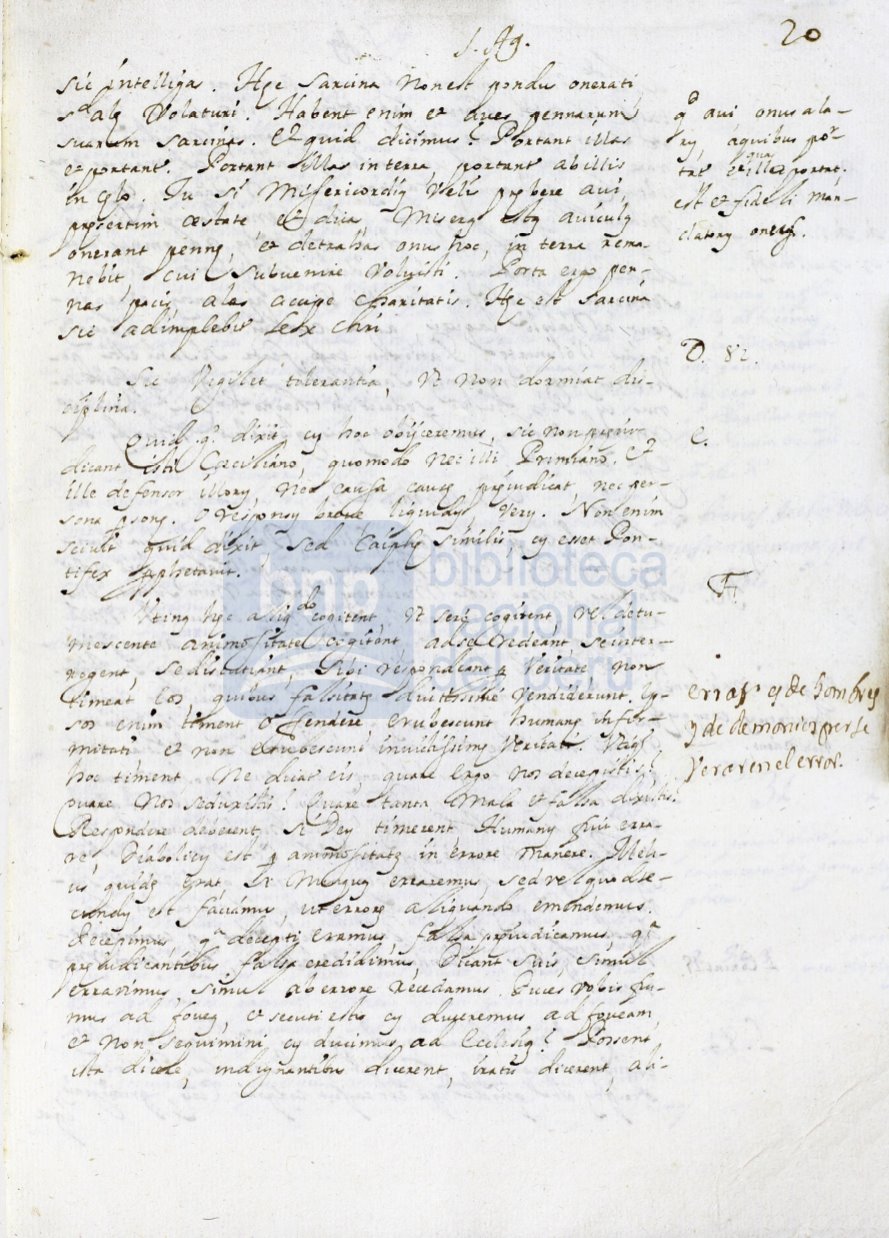 S. Ag.
20
sic intelligas. Hęc sarcina non est pondus onerati
sed alę Volaturi. Habent enim et aues pennarum
suarum sarcinas. Et quid dicimus? Portant illas
et portantr. Portant illas in terra, portantr ab illis
in cęlo. Tu si Misericordię Velis prębere aui
pręsertim ęstate et dicas Miserę istā auiculę
onerant pennę, et detrahas onus hoc, in terra rema-
nebit, cui subuenire Voluisti. Porta ergo pen-
nas pacis, alas accipe charitatis. Hęc est sarcina
sic adimplebis Lex chri
Sic Vigilet tolerantia, Vt non dormiat dis-
ciplina.
Quid qd dixit, cū hoc obijceremus, sic non pręiu-
dicant isti Cæciliano, quomodo nec illi Primiano. Et
ille defensor illorū, Nec causa causę pręiudicat, nec per-
sona psonę. O responsū breue liquidū Verū. Non enim
sciuit quid dixit, sed Caiphę similis, cū esset Pon-
tifex pphetauit.
Vtinā hęc aliqdo cogitent, Vt serò cogitent, vel detu-
mescente animositate cogitent, ad se redeant, se inter-
rogent, se discutiant, sibi respondeant, p Veritate non
timeant eos, quibus falsitatē diutissimè vendiderunt. Ip-
sos enim timent offendere erubescunt humanę infir-
mitati et non erubescunt inuictissimę Veritati.
hoc timent Ne dicat eis, quare ergo nos decepistis?
quare Nos seduxistis? Quare tanta Mala et falsa dixistis?
Respondere deberent, si Deū timerent Humanū fuit erra-
re, Diabolicū est p animositatē in errore manere. Meli-
us quidē erat si Nunquā erraremus, sed vel quod se-
cundū est faciamus, ut errorē aliquando emendemus.
Decepimus, qa decepti eramus, falsa pręiudicauimus, qa
pręiudicantibus falsa credidimus, Dicant suis, simul
errauimus, simul ab errore recedamus. Duces Vobis fui-
mus ad foueā, et secuti estis cū duceremus ad foueam,
et non sequimini cū ducimus ad Ecclesiā? Possent
ista dicere, indignantibus dicerent, iratis dicerent, ali-
qd aui onus ala-
rū, à quibus por-
tatr et qua illas portat.
est et fideli man-
datorū onus.
D. 82.
C.
F.
errar es de hombres
y de demonios perse
verar en el error.